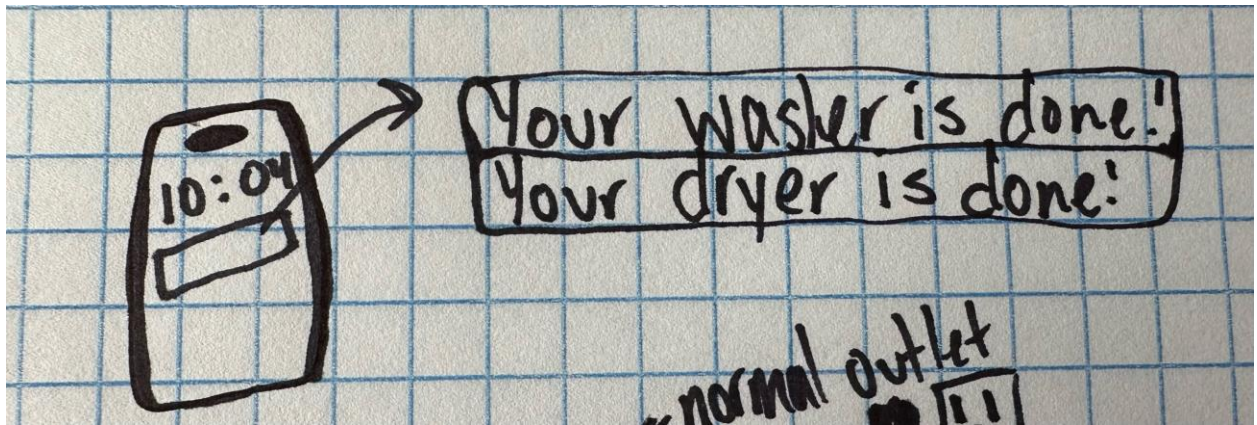 10:04
Your washer is done!
Your dryer is done!
normal outlet